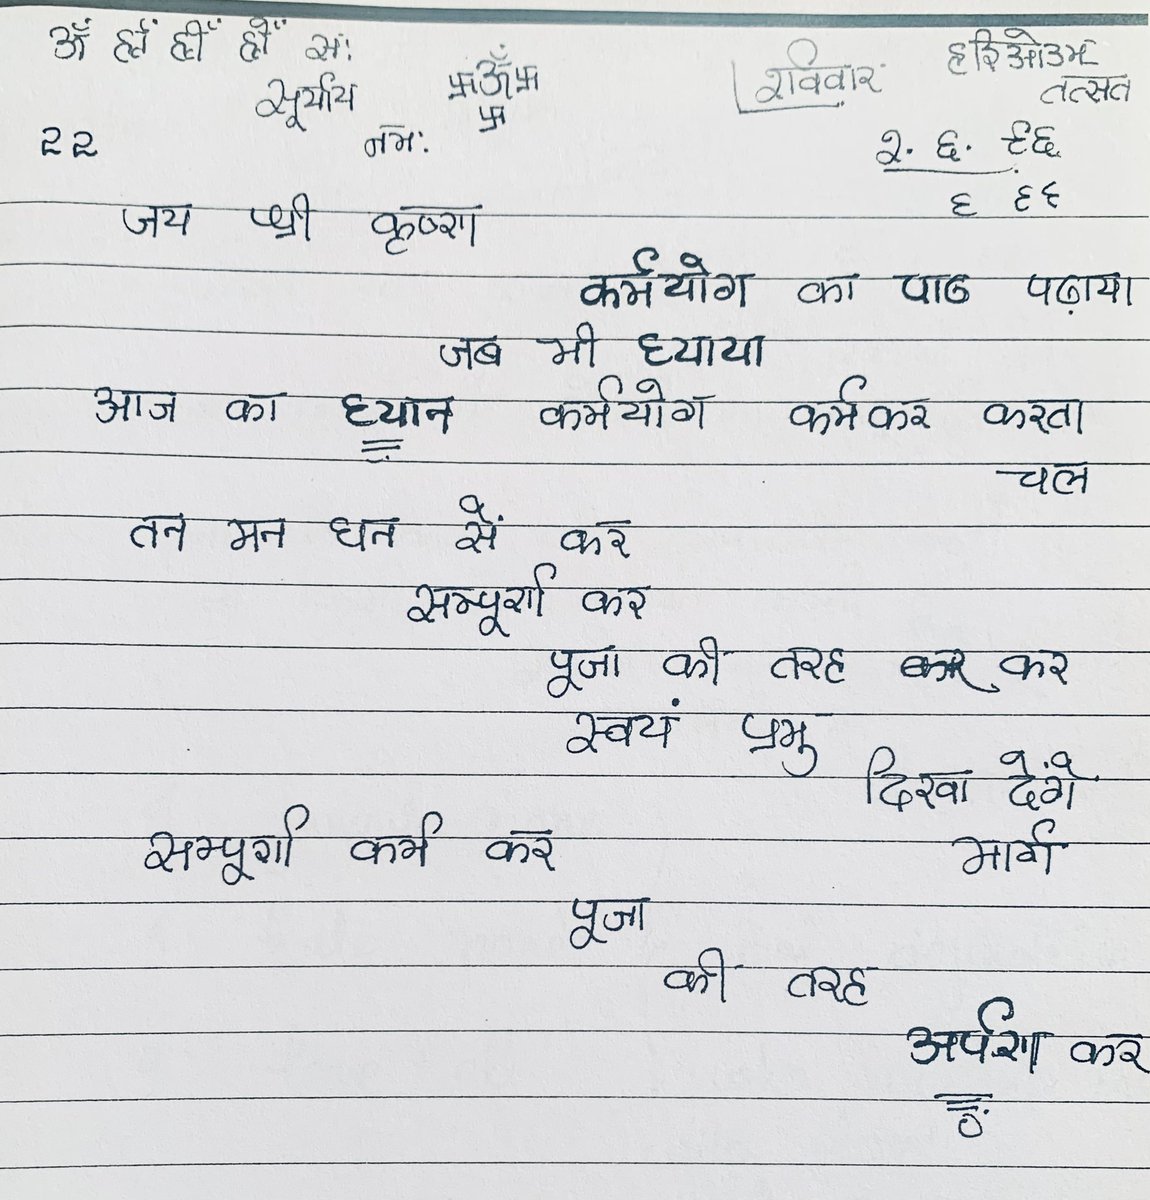 ॐ ह्रां ह्रीं ह्रौं सः
सूर्याय
नमः
卐ॐ卐
卐
रविवार
हरिओउम
तत्सत
२२
२. ६. ९६
६ ६६
जय श्री कृष्ण
कर्मयोग का पाठ पढ़ाया
जब भी ध्याया
आज का ध्यान कर्मयोग कर्मकर करता
चल
तन मन धन सें कर
सम्पूर्ण कर
पूजा की तरह कर
स्वयं प्रभु
दिखा देंगे
सम्पूर्ण कर्म कर मार्ग
पूजा
की तरह
अर्पण कर